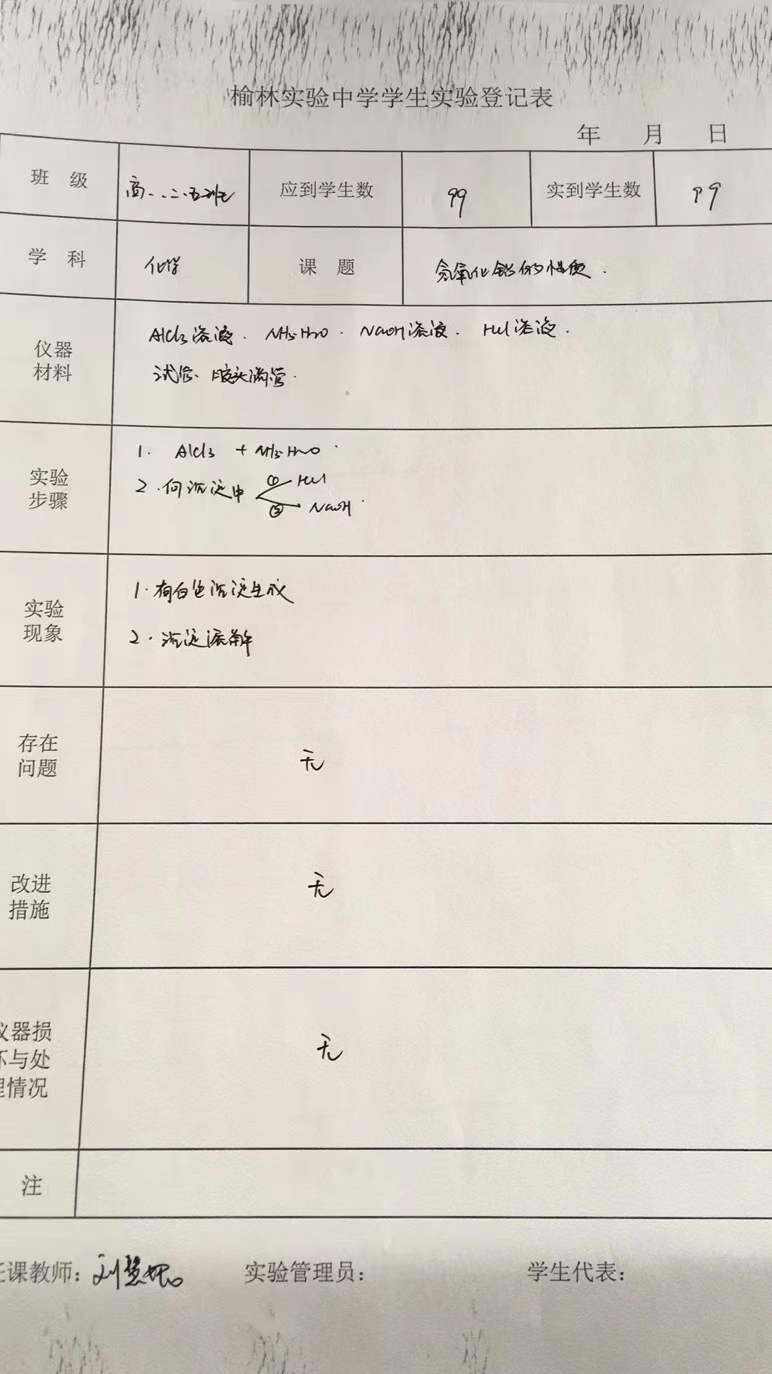 榆林实验中学学生实验登记表
年 月 日
班 级 高一.二.五班 应到学生数 99 实到学生数 99
学 科 化学 课 题 氢氧化铝的性质.
仪器
材料
AlCl3溶液. NH3·H2O. NaOH溶液. HCl溶液.
试管. 胶头滴管.
实验
步骤
1. AlCl3 + NH3·H2O.
2. 向沉淀中 ① HCl
② NaOH.
实验
现象
1. 有白色沉淀生成
2. 沉淀溶解
存在
问题
无
改进
措施
无
仪器损
坏与处
理情况
无
注
任课教师： 实验管理员： 学生代表：